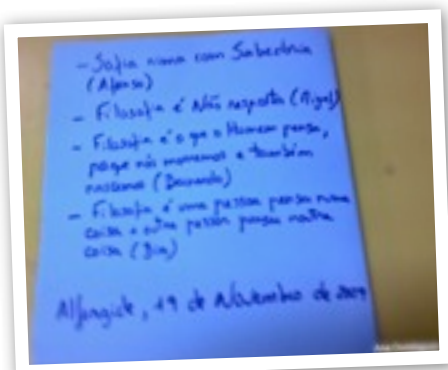 - Sofia rima com Sabedoria
(Afonso)
- Filosofia é Não resposta
- Filosofia é o que o Homem pensa,
porque nós morremos e também
nascemos (Bernardo)
- Filosofia é uma pessoa pensar numa
coisa e outra pessoa pensar noutra
coisa (Bia)
Alfragide, 19 de Novembro de 2009